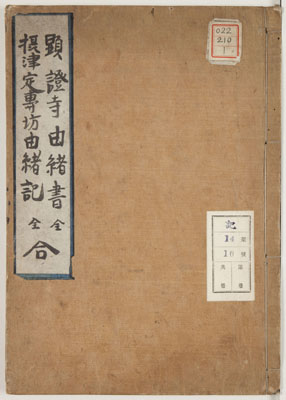 顕證寺由緒書全
摂津定專坊由緒記全
合
022
210
1
記
14
1